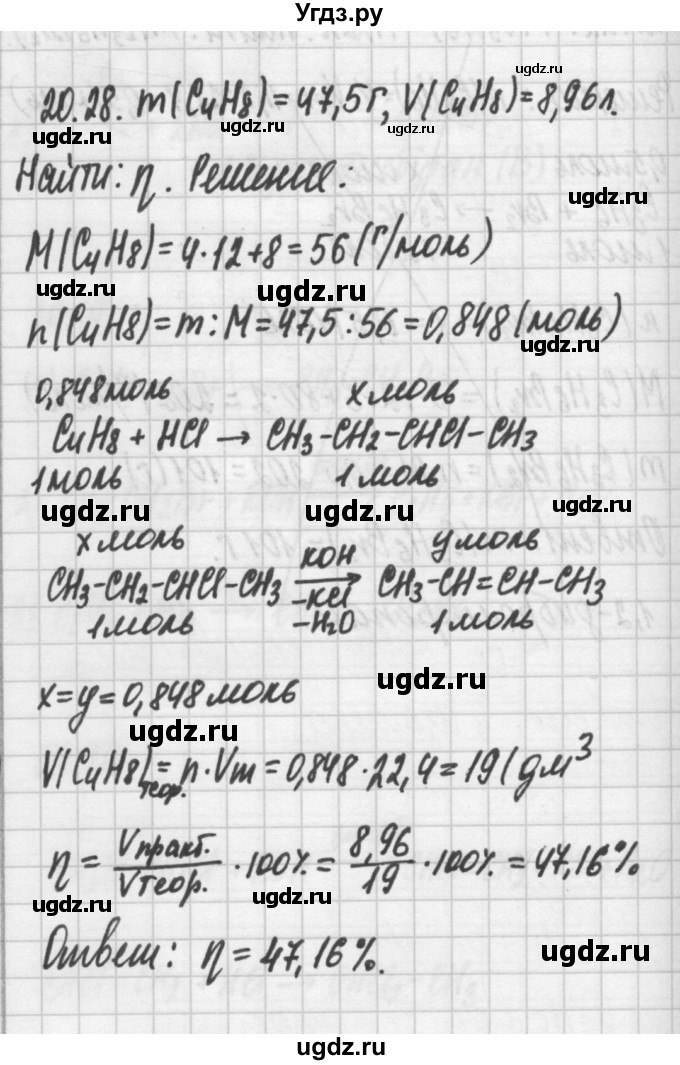 Угдз.ру
20.28. m(C₄H₈)=47,5г, V(C₄H₈)=8,96л.
ugdz.ru ugdz.ru ugdz.ru ugdz.ru
Найти: η. Решение:
ugdz.ru
M(C₄H₈)=4·12+8=56(г/моль)
ugdz.ru ugdz.ru
n(C₄H₈)=m:M=47,5:56=0,848(моль)
ugdz.ru
0,848моль x моль
C₄H₈ + HCl → CH₃-CH₂-CHCl-CH₃
1моль 1моль
ugdz.ru ugdz.ru ugdz.ru
x моль y моль
CH₃-CH₂-CHCl-CH₃ KOH -KCl -H₂O → CH₃-CH=CH-CH₃
1моль 1моль
x=y=0,848моль
ugdz.ru
ugdz.ru
V(C₄H₈)теор.=n·Vm=0,848·22,4=19(дм³
η = Vпракт./Vтеор. ·100%= 8,96/19 ·100% =47,16%
ugdz.ru ugdz.ru
Ответ: η=47,16%.
ugdz.ru
ugdz.ru